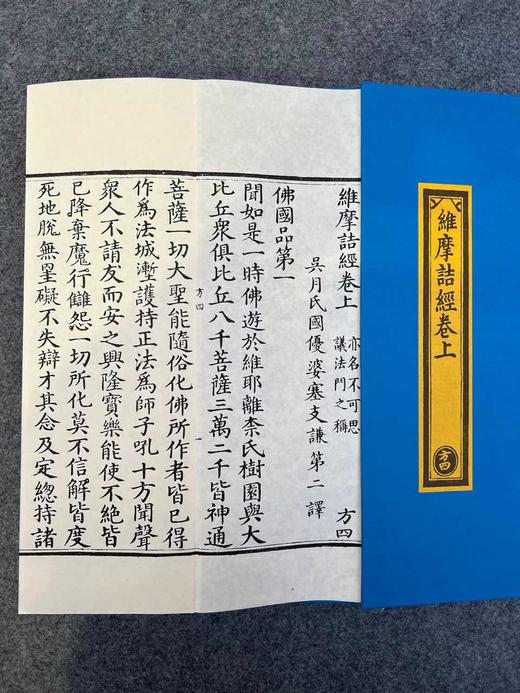 維摩詰經卷上
方四
維摩詰經卷上 亦名不可思 方四
議法門之稱
吳月氏國優婆塞支謙第二譯
佛國品第一
聞如是一時佛遊於維耶離柰氏樹園與大
比丘衆俱比丘八千菩薩三萬二千皆神通
方四 一
菩薩一切大聖能隨俗化佛所作者皆已得
作爲法城塹護持正法爲師子吼十方聞聲
衆人不請友而安之興隆寶樂能使不絕皆
已降棄魔行讎怨一切所化莫不信解皆度
死地脫無罣礙不失辯才其念及定緫持諸